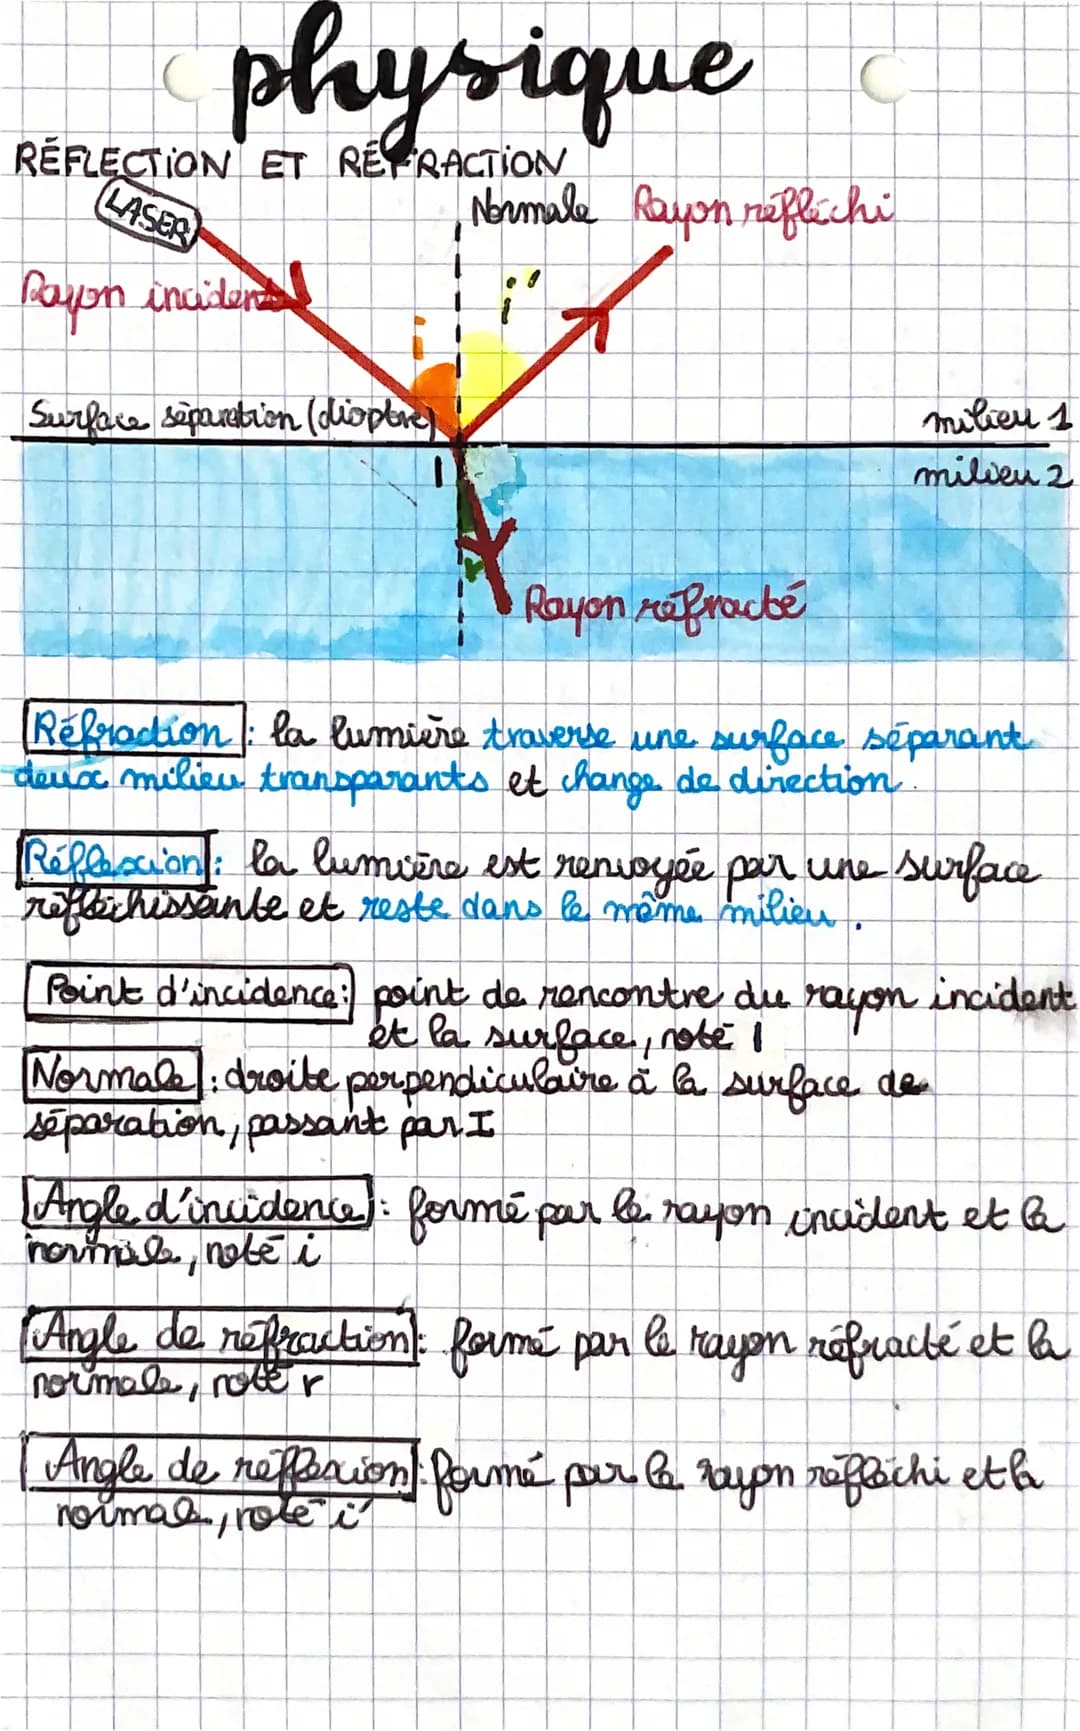 physique
RÉFLECTION ET RÉFRACTION
LASER
Normale Rayon réfléchi
Rayon incident
i
i'
Surface séparation (dioptre)
milieu 1
I
milieu 2
r
Rayon réfracté
Réfraction : la lumière traverse une surface séparant
deux milieu transparants et change de direction.
Réflexion : la lumière est renvoyée par une surface
réfléchissante et reste dans le même milieu.
Point d'incidence: point de rencontre du rayon incident
et la surface, noté I
Normale : droite perpendiculaire à la surface de
séparation, passant par I
Angle d'incidence : formé par le rayon incident et la
normale, noté i
Angle de réfraction : formé par le rayon réfracté et la
normale, noté r
Angle de réflexion : formé par le rayon réfléchi et la
normale, noté i'